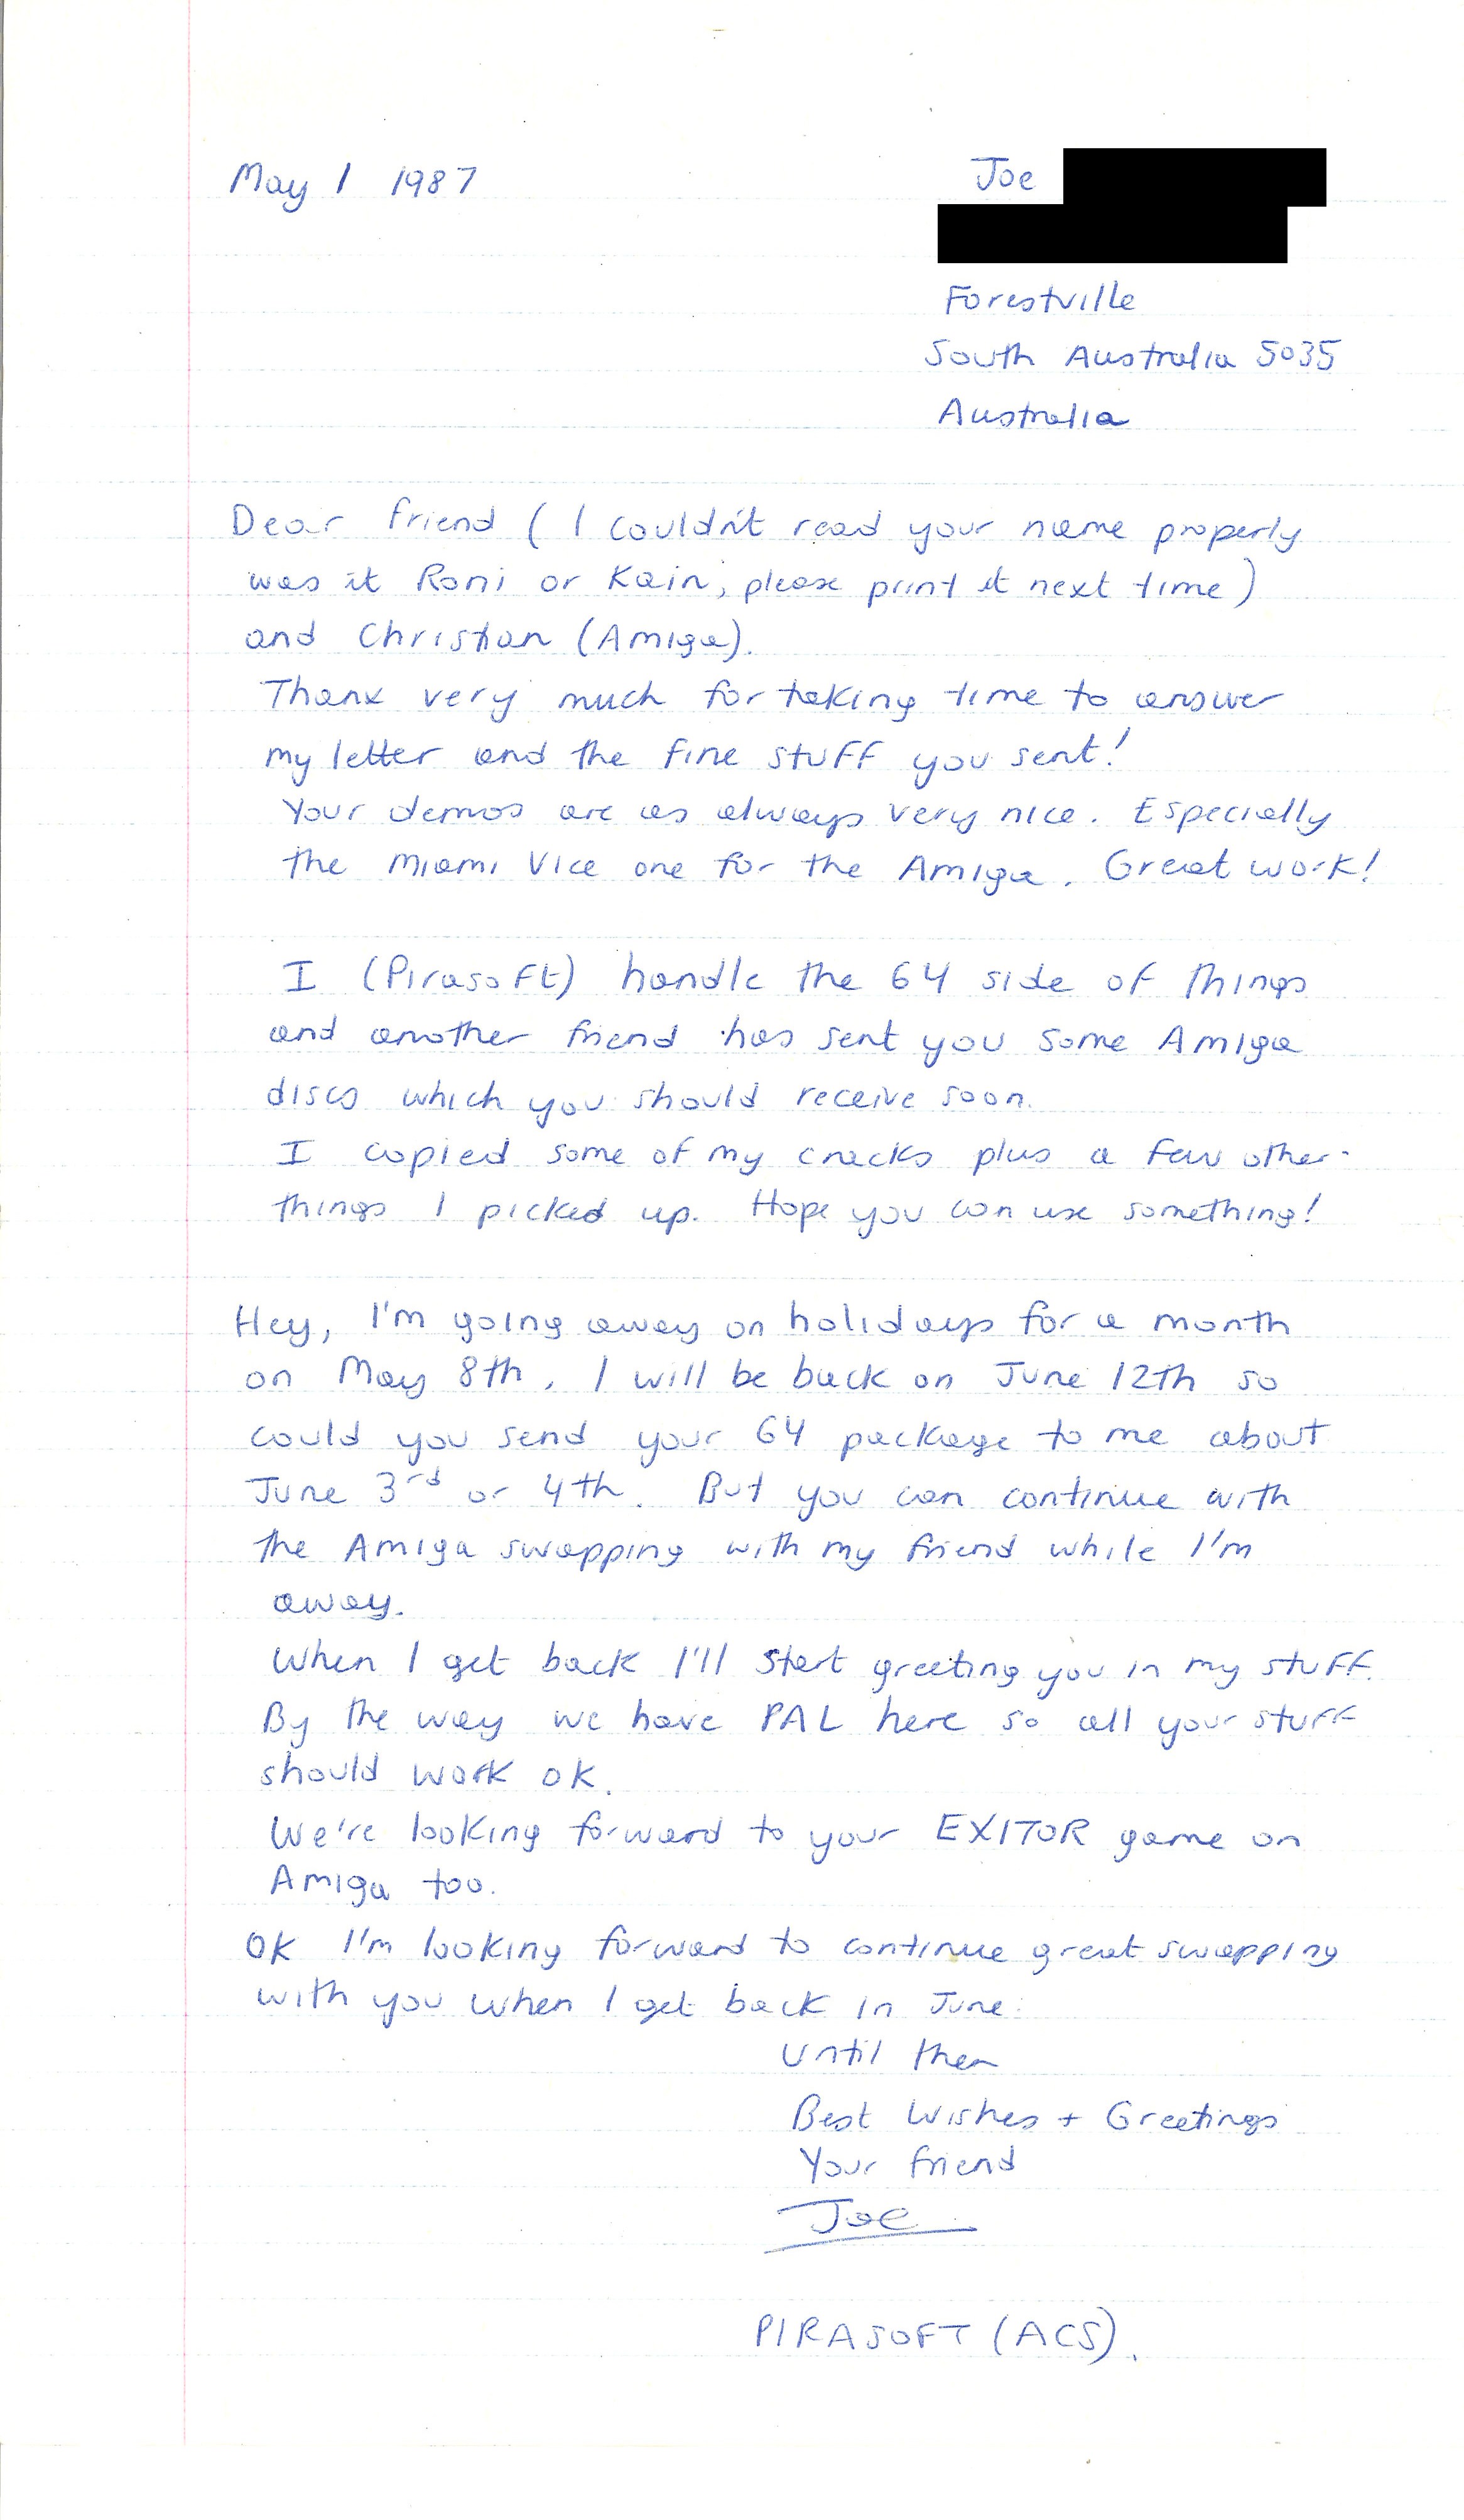 May 1 1987
Joe
Forestville
South Australia 5035
Australia
Dear friend ( I couldn't read your name properly
was it Roni or Kain, please print it next time)
and Christian (Amiga).
Thanx very much for taking time to answer
my letter and the fine stuff you sent!
Your demos are as always very nice. Especially
the Miami Vice one for the Amiga. Great work!
I (Pirasoft) handle the 64 side of things
and another friend has sent you some Amiga
discs which you should receive soon.
I copied some of my cracks plus a few other
things I picked up. Hope you can use something!
Hey, I'm going away on holidays for a month
on May 8th. I will be back on June 12th so
could you send your 64 package to me about
June 3rd or 4th. But you can continue with
the Amiga swapping with my friend while I'm
away.
When I get back I'll start greeting you in my stuff.
By the way we have PAL here so all your stuff
should work ok.
We're looking forward to your EXITOR game on
Amiga too.
OK I'm looking forward to continue great swapping
with you when I get back in June.
Until then
Best Wishes + Greetings
Your friend
Joe
PIRASOFT (ACS).